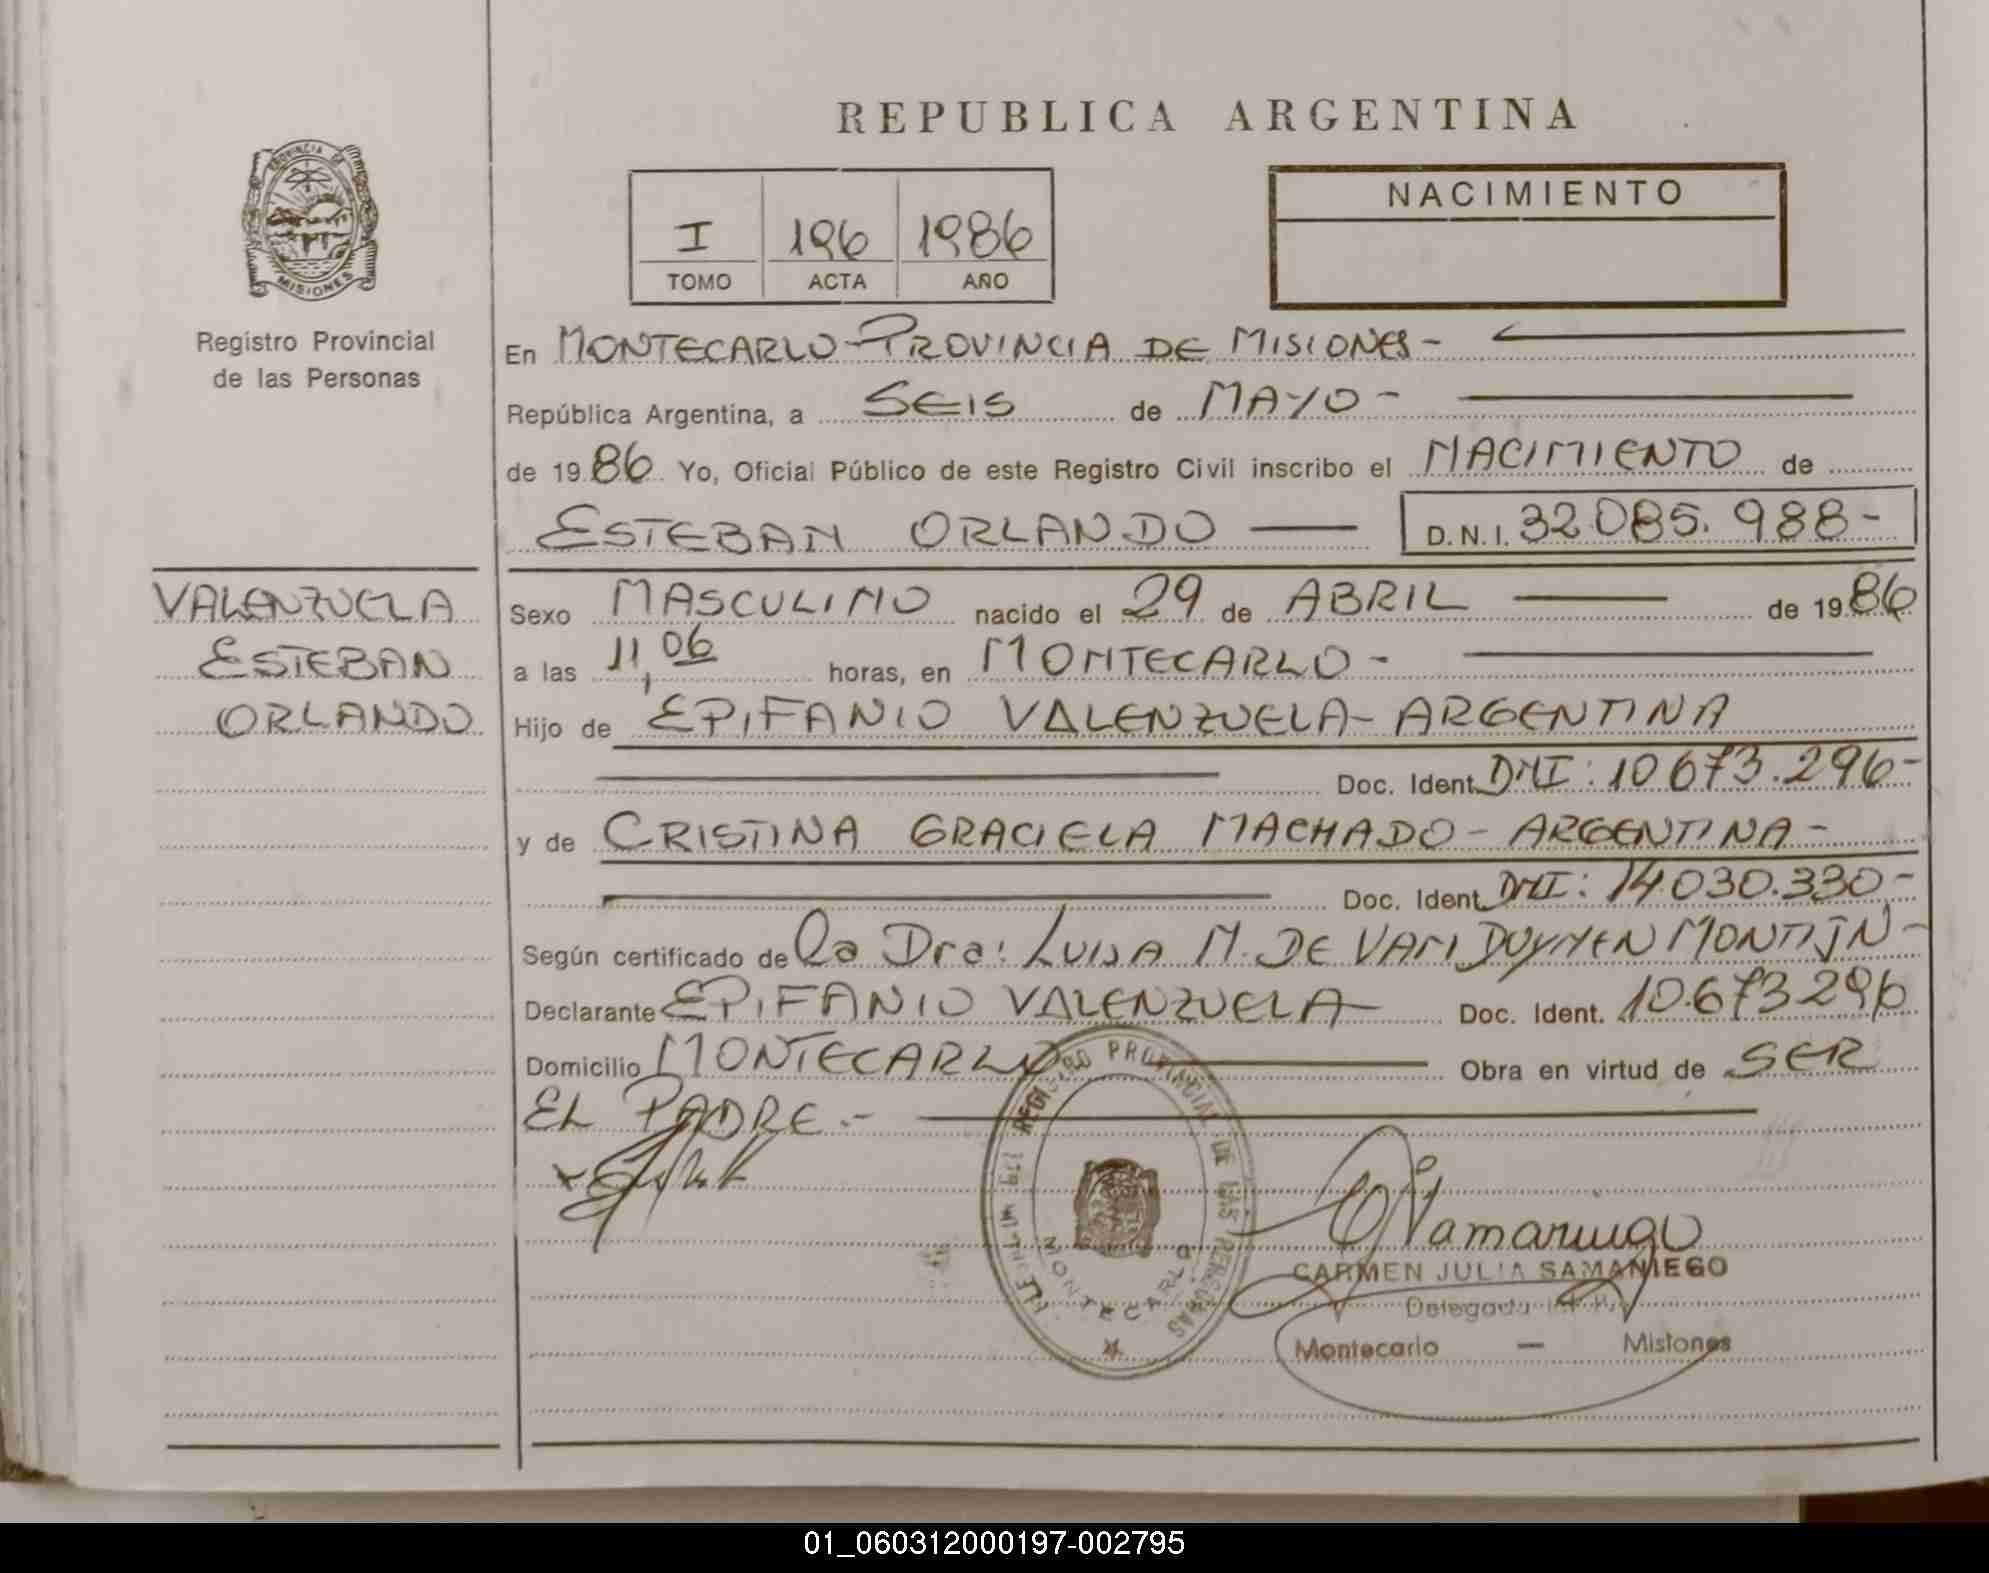 REPUBLICA ARGENTINA
PROVINCIA DE
MISIONES
Registro Provincial
de las Personas
I 196 1986
TOMO ACTA AÑO
NACIMIENTO
En MONTECARLO - PROVINCIA DE MISIONES -
República Argentina, a SEIS de MAYO -
de 1986 Yo, Oficial Público de este Registro Civil inscribo el NACIMIENTO de
ESTEBAN ORLANDO D.N.I. 32.085.988-
VALENZUELA
ESTEBAN
ORLANDO
Sexo MASCULINO nacido el 29 de ABRIL de 1986
a las 11,06 horas, en MONTECARLO -
Hijo de EPIFANIO VALENZUELA - ARGENTINA
Doc. Ident. DNI: 10.673.296-
y de CRISTINA GRACIELA MACHADO - ARGENTINA -
Doc. Ident. DNI: 14.030.330-
Según certificado de la Dra: LUISA M. DE VAN MONTIJN -
Declarante EPIFANIO VALENZUELA - Doc. Ident. 10.673.296
Domicilio MONTECARLO Obra en virtud de SER
EL PADRE.-
REGISTRO PROVINCIAL DE LAS PERSONAS
MONTECARLO
CARMEN JULIA SAMANIEGO
Delegada
Montecarlo — Misiones
01_060312000197-002795